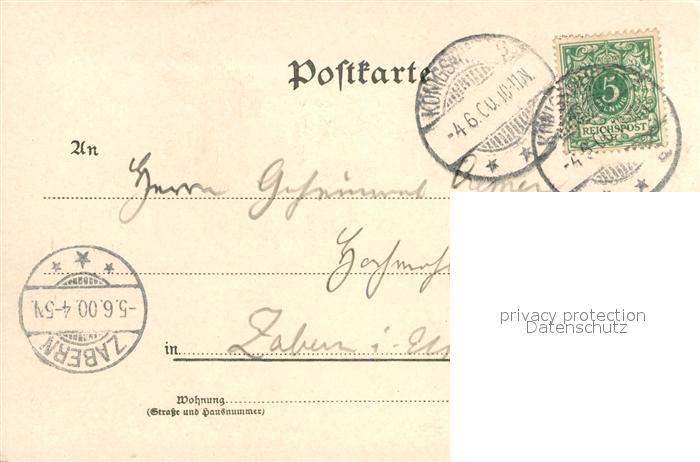 Postkarte
-4.6.00.10-11N.
5
PFENNIG
REICHSPOST
An
Herrn Geheimrat
-5.6.00.4-5N.
ZABERN
in Zabern i.
Wohnung
(Straße und Hausnummer)
privacy protection
Datenschutz